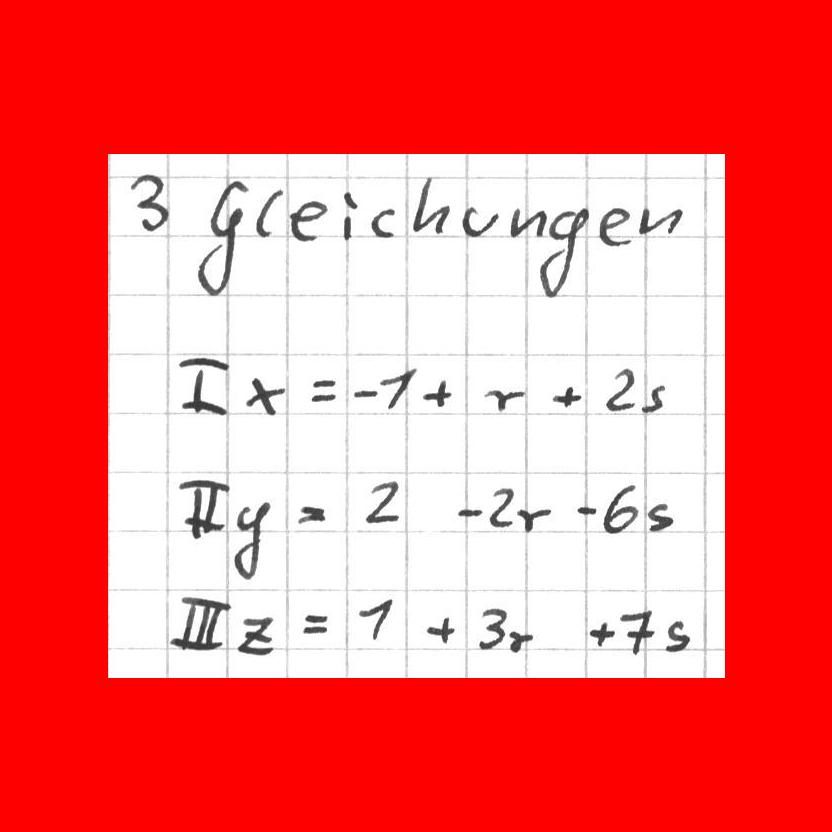 3 Gleichungen
I x = -1 + r + 2s
II y = 2 -2r -6s
III z = 1 + 3r +7s